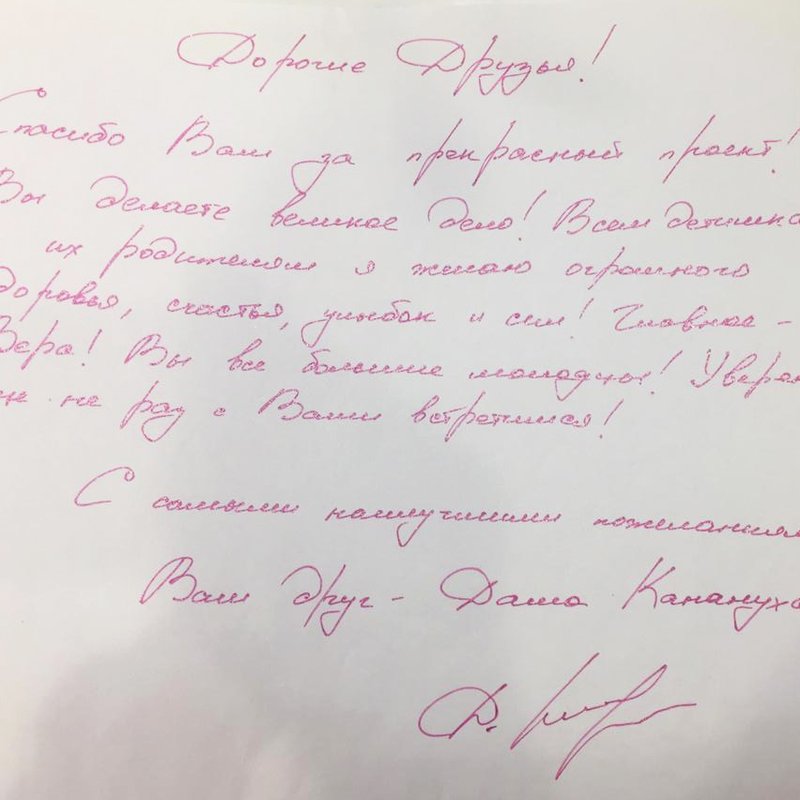 Дорогие Друзья!
Спасибо Вам за прекрасный проект!
Вы делаете великое дело! Всем детишка
их родителям я желаю огромного
доровья, счастья, улыбок и сил! Главное -
Вера! Вы все большие молодцы! Уверен
не раз с Вами встретимся!
С самыми наилучшими пожеланиям
Ваш друг - Даша Канануха